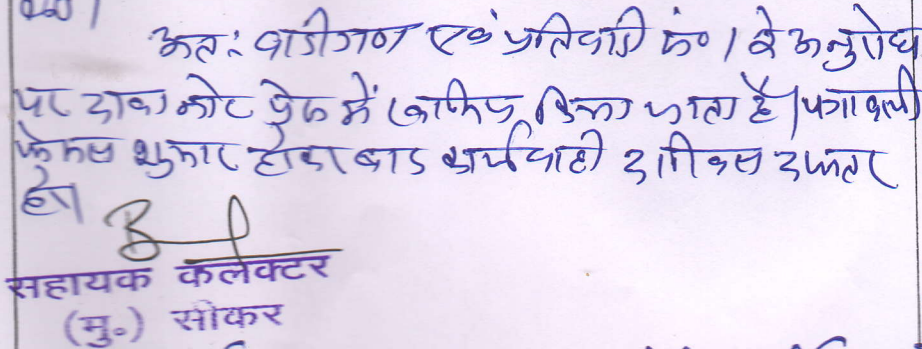 अतः वादीगण एवं प्रतिवादी सं० 1 के अनुरोध
पर दावा नोट प्रेस में खारिज किया जाता है। पत्रावली
फैसल शुमार होकर बाद कार्यवाही दाखिल दफ्तर
हो।
सहायक कलेक्टर
(मु०) सीकर